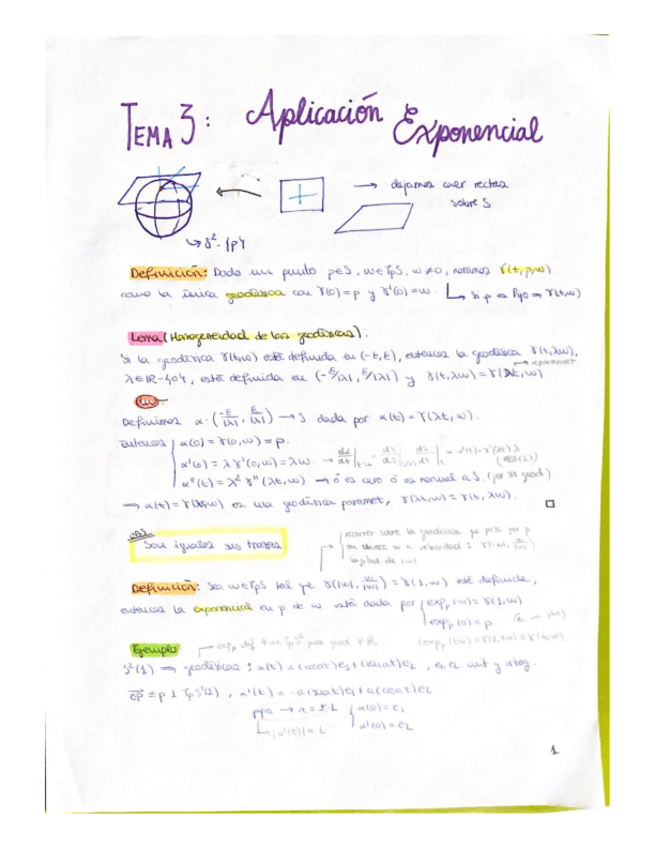 TEMA 3: Aplicación Exponencial
→ dejamos caer rectas
sobre S
↳ S² - {p}
Definición: Dado un punto p∈S, w∈TpS, w≠0, notamos γ(t,p,w)
como la única geodésica con γ(0)=p y γ'(0)=w. ↳ Si p es fijo ⇒ γ(t,w)
Lema (Homogeneidad de las geodésicas):
Si la geodésica γ(t,w) está definida en (-ε,ε), entonces la geodésica γ(t,λw),
λ∈ℝ-{0}, está definida en (-ε/|λ|, ε/|λ|) y γ(t,λw)=γ(λt,w)
→ reparamet
Definimos α: (-ε/|λ|, ε/|λ|) → S dada por α(t)=γ(λt,w).
entonces α(0)=γ(0,w)=p.
α'(0)=λγ'(0,w)=λw.
α''(t)=λ²γ''(λt,w) → ó es cero ó es normal a S. (por ser geod)
→ α(t)=γ(λt,w) es una geodésica paramet, γ(λt,w)=γ(t,λw). □
OBS
Son iguales sus trazas.
recorrer sobre la geodésica que pasa por p
longitud de |w|
Definición: Sea w∈TpS tal que γ(|w|, w/|w|)=γ(1,w) está definida,
entonces la exponencial en p de w está dada por { exp_p(w)=γ(1,w)
exp_p(0)=p
(exp_p(tw)=γ(1,tw)=γ(t,w)
Ejemplo
S²(1) → geodésicas: α(t)=(cos at)e₁+(sin at)e₂, e₁,e₂ unit y ortog.
op ≡ p ⊥ TpS²(1), α'(t)=-a(sin at)e₁+a(cos at)e₂
ppa → a=±1 { α(0)=e₁
↳ |α'(t)|=1 α'(0)=e₂
1